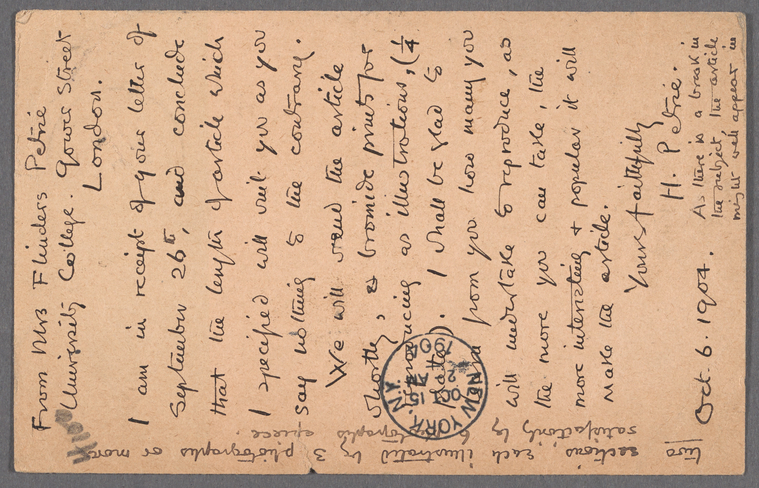 From Mrs Flinders Petrie
University College. Gower Street
London.
I am in receipt of your letter of
September 26th, and conclude
that the length of article which
I specified will suit you as you
say nothing to the contrary.
We will send the article
shortly, & bromide prints for
reproducing as illustrations, (1/4
plates). I shall be glad to
from you how many you
will undertake to reproduce, as
the more you can take, the
more interesting & popular it will
make the article.
Yours faithfully
H. Petrie.
Oct. 6. 1904.
As there is a break in
the subject the article
might well appear in
two sections, each illustrated by 3 photographs or more
satisfactorily by 6 photographs apiece.
NEW YORK, N.Y.
OCT 15
2
190